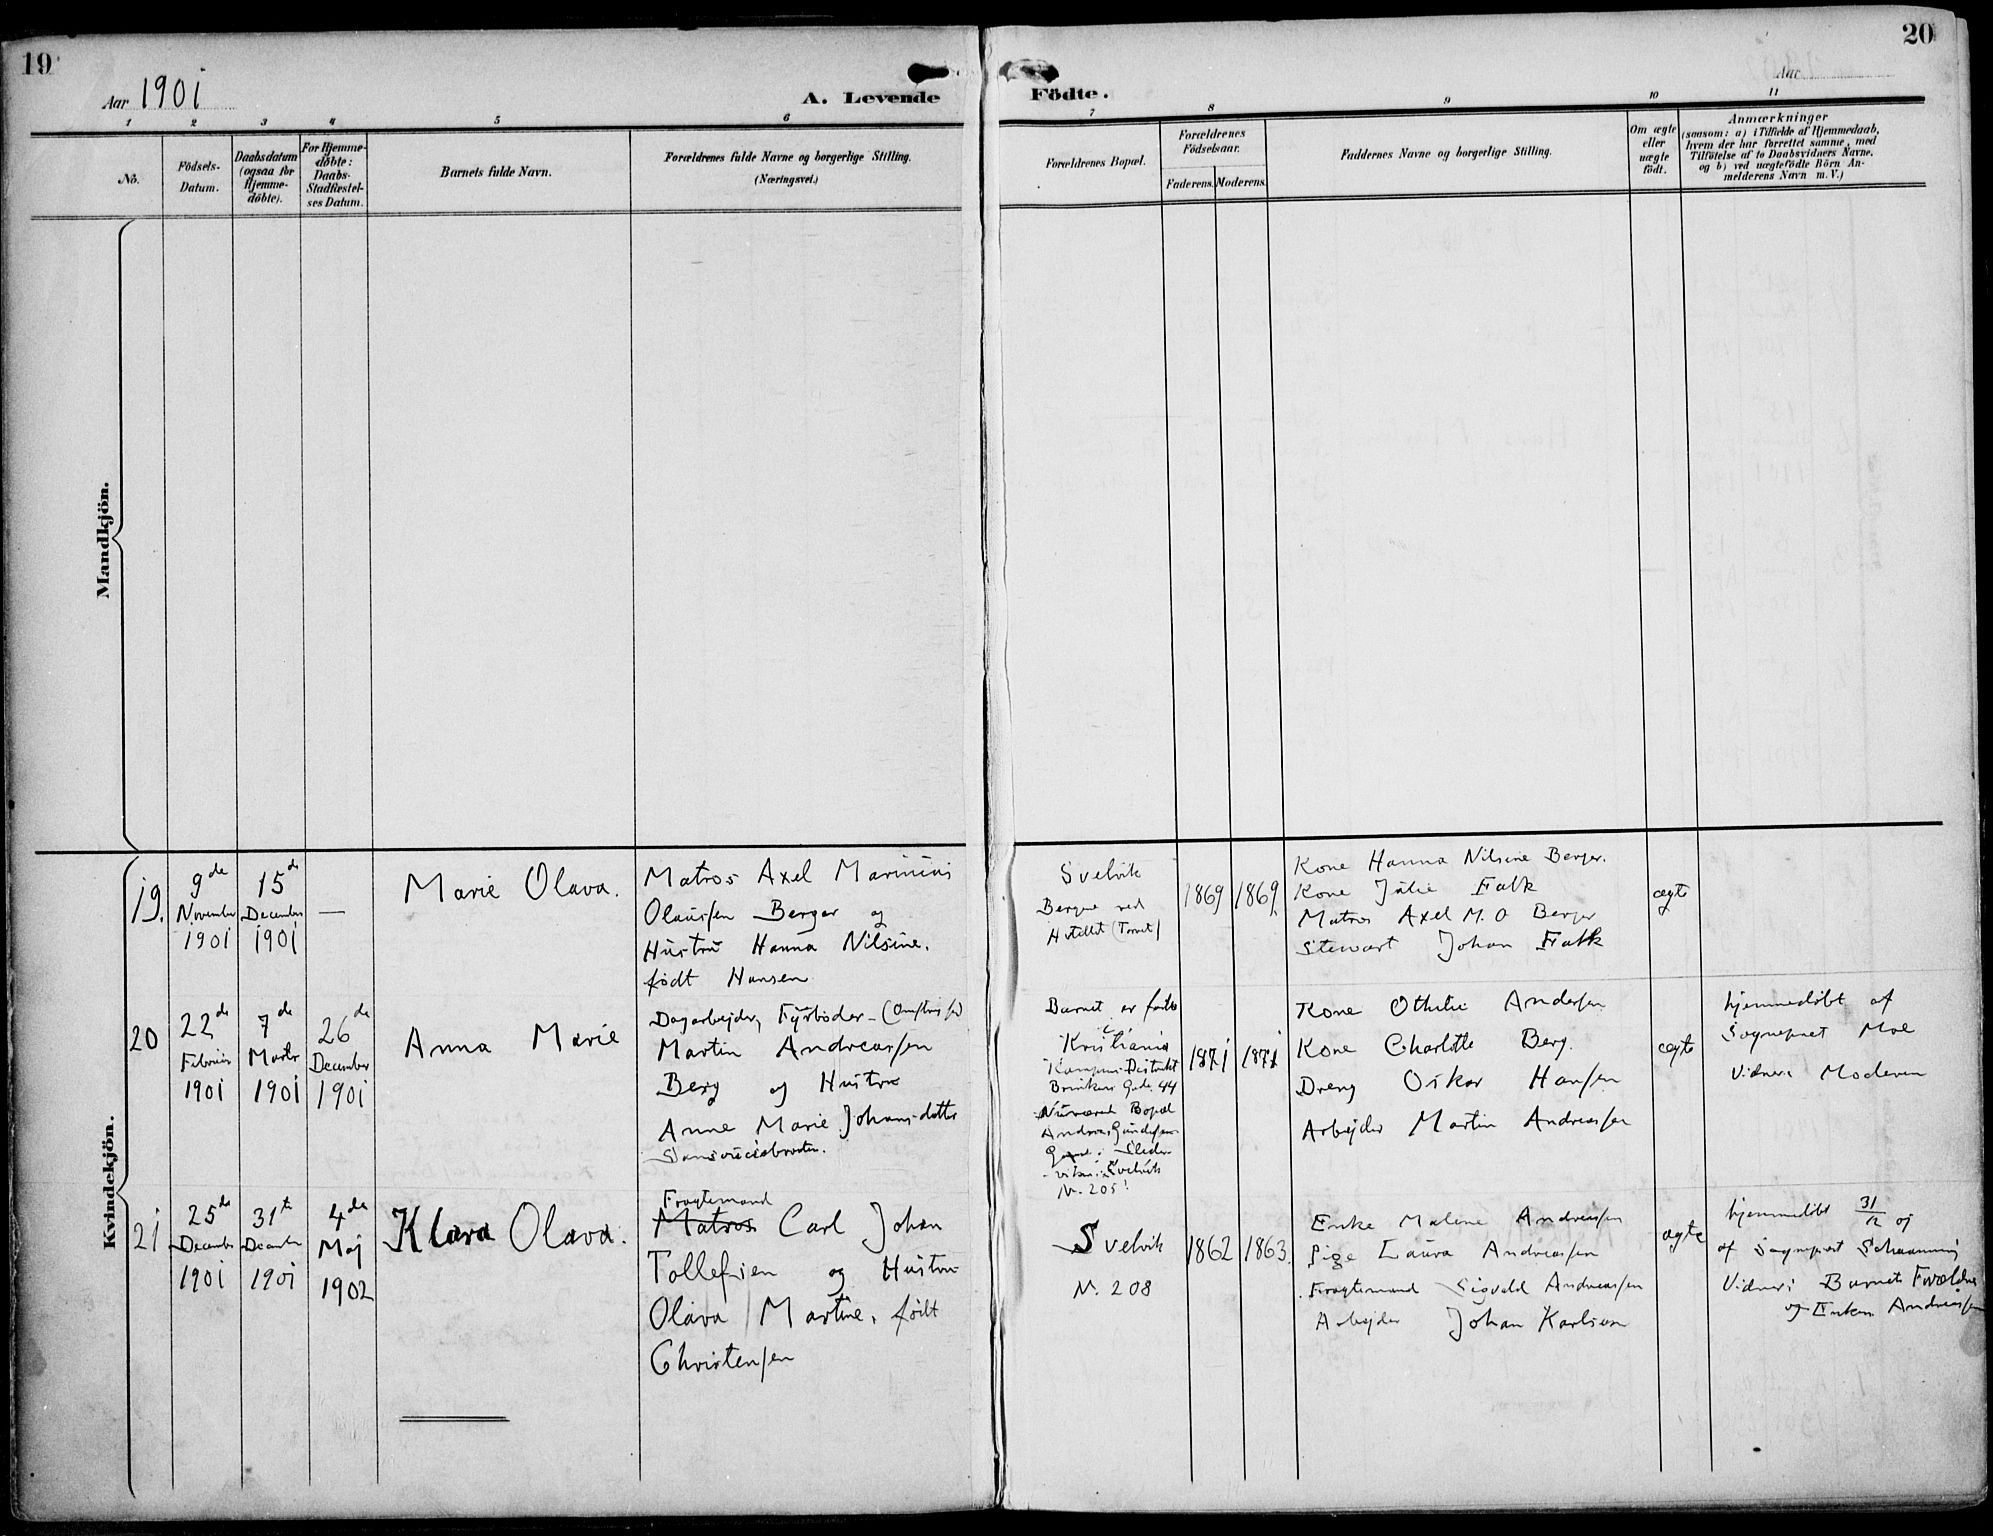 19
Aar 1901
A. Levende
Födte.
20
Aar
1
2
3
4
5
6
7
8
9
10
11
No.
Födsels-
Datum.
Daabsdatum
(ogsaa for
Hjemme-
döbte).
For Hjemme-
döbte:
Daabs-
Stadfæstel-
ses Datum.
Barnets fulde Navn.
Forældrenes fulde Navne og borgerlige Stilling.
(Næringsvei.)
Forældrenes Bopæl.
Forældrenes
Födselsaar.
Faderens.
Moderens.
Faddernes Navne og borgerlige Stilling.
Om ægte
eller
uægte
födt.
Anmærkninger
(saasom: a) i Tilfælde af Hjemmedaab,
hvem der har forrettet samme, med
Tilföielse af to Daabsvidners Navne,
og b) ved uægtefödte Börn An-
melderens Navn m. V.)
Mandkjön.
Kvindekjön.
19.
9de
November
1901
15de
December
1901
—
Marie Olava.
Matros Axel Marinius
Olaussen Berger og
Hustru Hanna Nilsine,
født Hansen
Svelvik
Bergne ved
Hotellet (Torvet)
1869
1869
Kone Hanna Nilsine Berger.
Kone Julie Falk
Matros Axel M. O Berger
Stewart Johan Falk
ægte
20
22de
Februar
1901
7de
Marts
1901
26de
December
1901
Anna Marie
Dagarbejder, Fyrbøder
Martin Andreassen
Berg og Hustru
Anne Marie Johansdatter
Barnet er født
i
Kristiania
Kampens Distrikt
Gade 44
Nuværend Bopæl
Svelvik
N. 205
1871
1871
Kone Othilie Andersen
Kone Charlotte Berg.
Dreng Oskar Hansen
Arbejder Martin Andreassen
ægte
hjemmedøbt af
Sogneprest Moe
Vidner: Moderen
21
25de
Decembr
1901
31te
December
1901
4de
Maj
1902
Klara Olava.
Fragtemand
Matros Carl Johan
Tollefsen og Hustru
Olava Martine, født
Christensen
Svelvik
N. 208
1862
1863.
Enke Malene Andreassen
Pige Laura Andreassen
Fragtemand Sigvald Andreassen
Arbejder Johan Karlsen
ægte
hjemmedøbt 31/12 01
af Sogneprest Schaanning
Vidner: Barnets Forældre
og Enken Andreassen